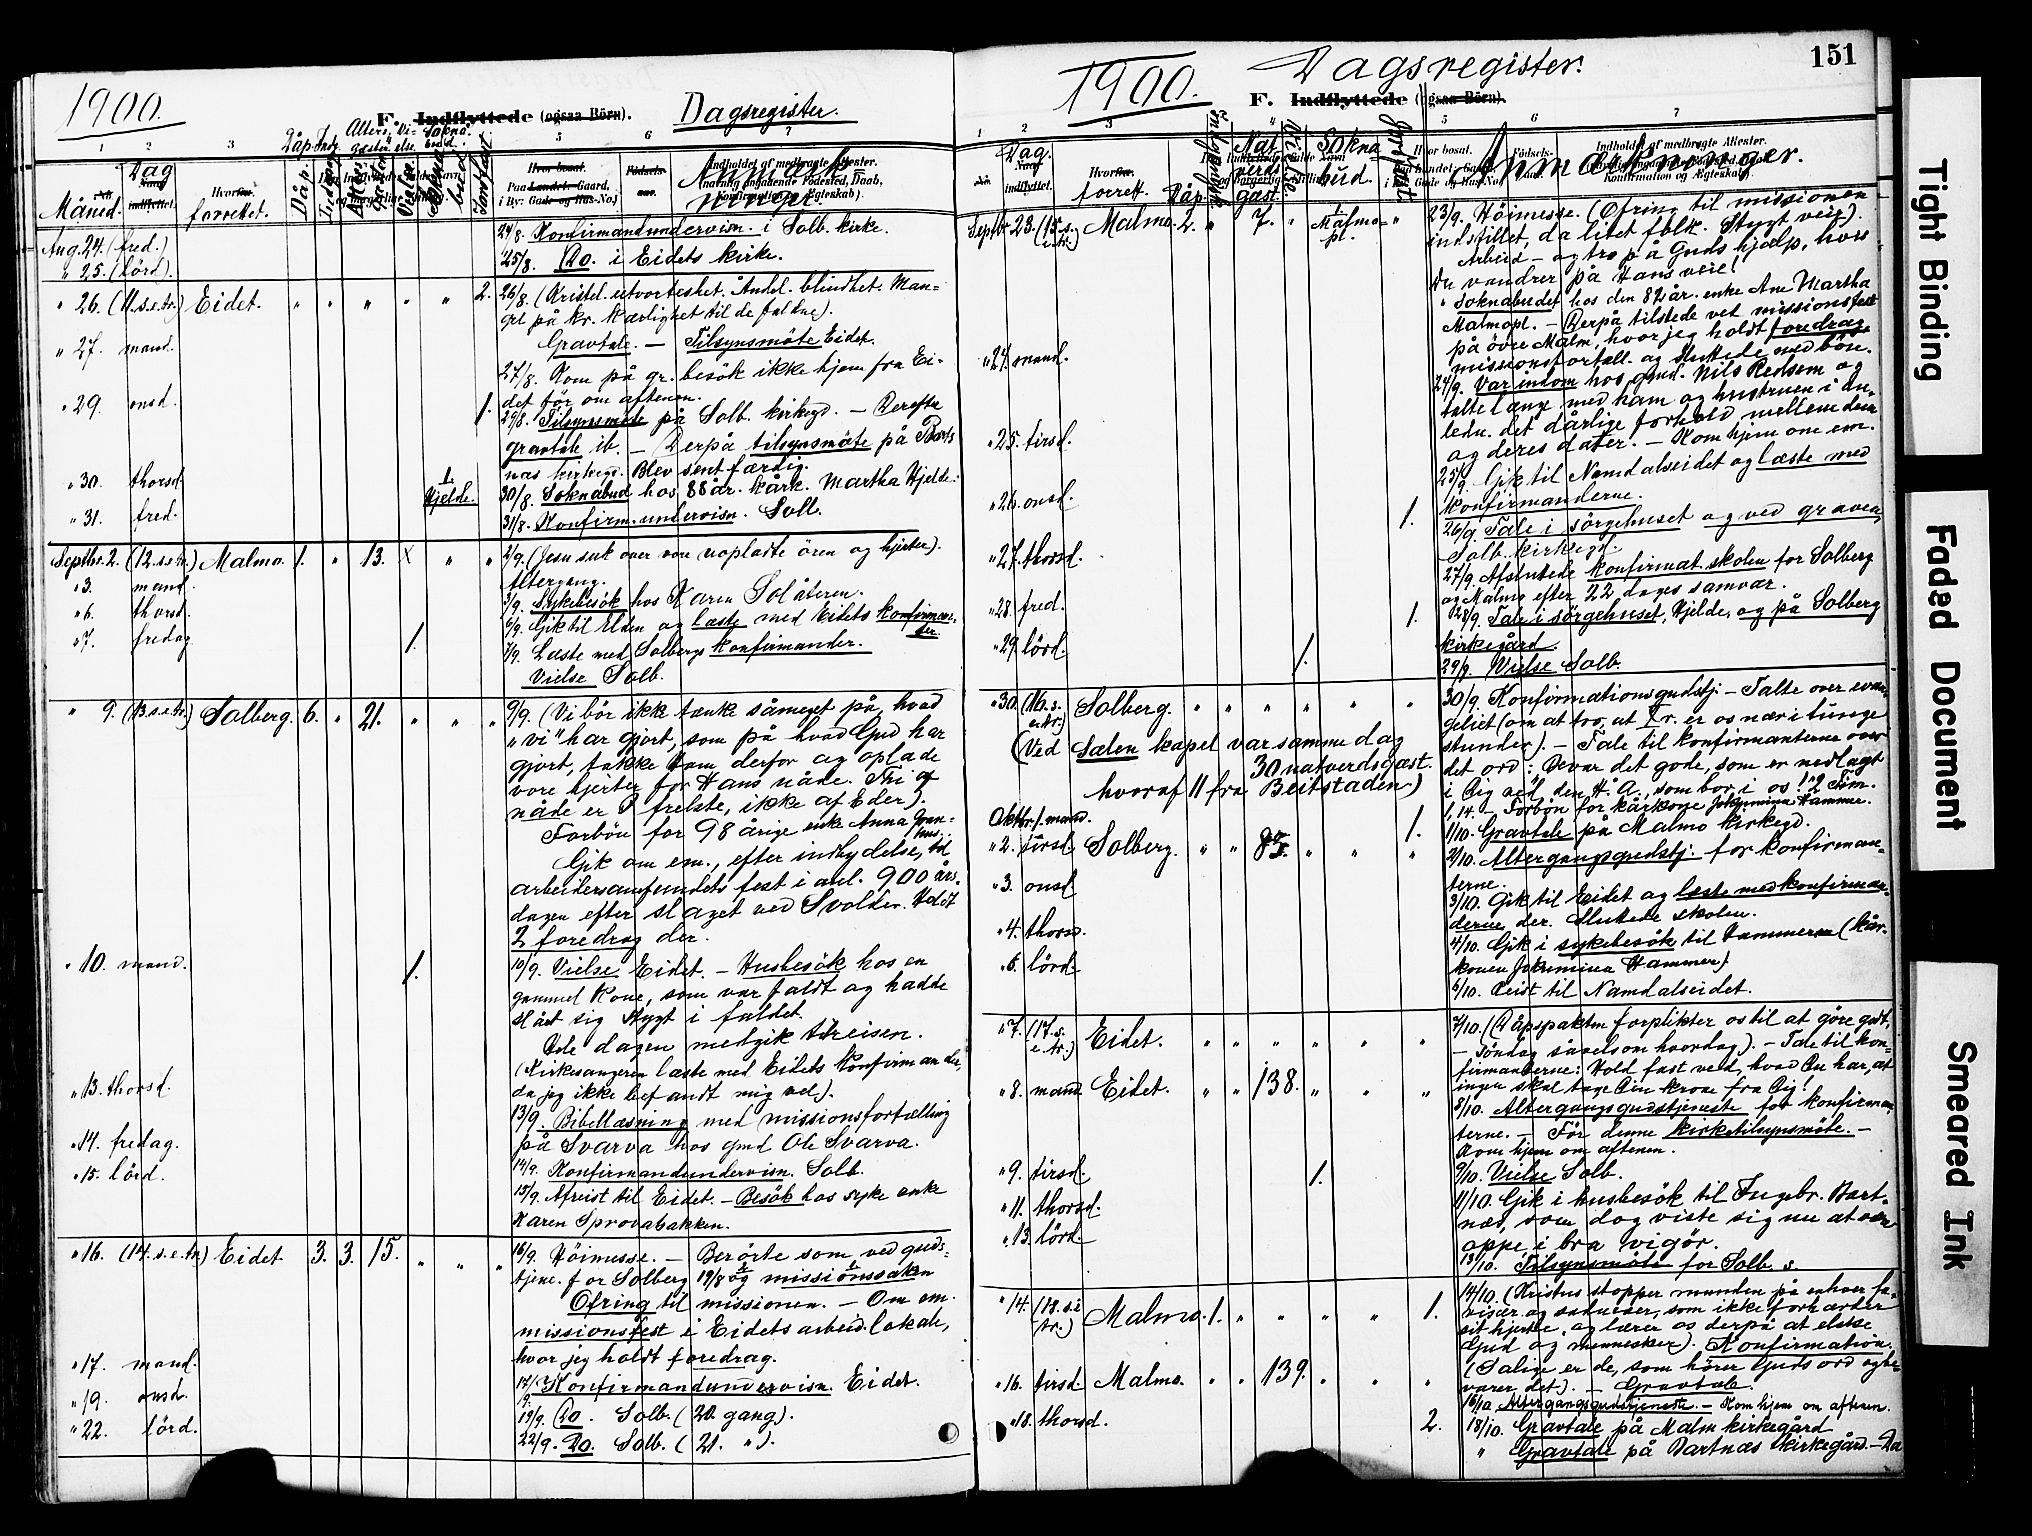 1900.
F. Indflyttede (ogsaa Börn).
Dagsregister.
Måned.
Dag
forrettet.
Dåp.
Anmærk
ninger
Aug. 24. (fred.)
24/8. Konfirmandundervisn. i Solb. kirke.
" 25. (lörd).
25/8. Do. i Eidets kirke.
" 26. (11. s. e. tr.) Eidet. " " " " " 2.
26/8. (Kristel. utvorteshet. Åndel. blindhet. Man-
gel på kr. kærlighet til de faldne).
Gravtale. — Tilsynsmöte Eidet.
" 27. mand.
27/8. Kom på gr. besök ikke hjem fra Ei-
det før om aftenen.
" 29. onsd. 1.
29/8. Tilsynsmöte på Solb. kirkegd. — Derefter
gravtale ib. — Derpå tilsynsmöte på Barts
næs kirkegd. Blev sent færdig.
" 30. thorsd. 1. Hjelde.
30/8. Soknabud hos 88 år. kårk. Martha Hjelde.
" 31. fred.
31/8. Konfirm. undervisn. Solb.
Septbr. 2. (12. s. e. tr.) Malmo. 1. " 13. X " "
2/9. (Jesu suk over vore uopladte ören og hjerter).
Altergang.
" 3. mand.
3/9. Sykebesök hos Karen Solåteren.
" 6. thorsd.
6/9. Gik til Elden og læste med Eidets konfirman-
der.
" 7. fredag 1.
7/9. Læste med Solbergs konfirmander.
Vielse Solb.
" 9. (13. s. e. tr.) Solberg. 6. " 21. " " "
9/9. (Vi bör ikke tænke såmeget på, hvad
"vi" har gjort, som på hvad Gud har
gjort, takke ham derfor og oplade
vore hjerter for Hans nåde. Thi af
nåde er I frelste, ikke af Eder).
Forbön for 98 årige enke Anna
Gik om em., efter indbydelse, til
arbeidersamfundets fest i anl. 900 års-
dagen efter slaget ved Svolder. Holdt
2 foredrag der.
" 10. mand. 1.
10/9. Vielse Eidet. — Husbesök hos en
gammel kone, som var faldt og hadde
slået sig stygt i faldet.
Hele dagen medgik til reisen.
(Kirkesangeren læste med Eidets konfirmander,
da jeg ikke befandt mig vel).
" 13. thorsd.
13/9. Bibellæsning med missionsfortælling
på Svarva hos gmd Ole Svarva.
" 14. fredag.
14/9. Konfirmandundervisn. Solb.
" 15. lörd.
15/9. Afreist til Eidet. — Besök hos syke enke
Karen Sprovabakken.
" 16. (14. s. e. tr.) Eidet 3. 3. 15. " " "
16/9. Höimesse. — Berörte som ved guds-
tjene. for Solberg 19/8 og missionssaken
Ofring til missionen. — Om em.
missionsfest i Eidets arbeid. lokale,
hvor jeg holdt foredrag.
" 17. mand.
17/9. Konfirmandundervisn. Eidet.
" 19. onsd.
19/9. Do. Solb. (20. gang).
" 22. lörd.
22/9. Do. Solb. (21. ").
1900. Dagsregister.
151
F. Indflyttede (ogsaa Börn).
Dag.
forrett.
Dåp
Nat
verds
gæst.
Vielse
Sokna
bud.
Anmærkninger.
Septbr 23. (15. s. e. tr.) Malmo. 2. " 7. " Malmo- pl. "
23/9. Höimesse. (Ofring til missionen
indstillet, da litet folk. Stygt veir).
Arbeid — og tro på Guds hjælp, hvis
Du vandrer på Hans veie!
" Soknabudet hos den 82 år. enke Ane Martha
Malmopl. — Derpå tilstede vet missionsfest
på övre Malm, hvor jeg holdt foredrag
missionsfortæll. og sluttede med bön.
" 24. mand.
24/9. Var indom hos gmd. Nils Redsem og
talte længe med ham og hustruen i an-
ledn. det dårlige forhold mellem dem
og deres dater. — Kom hjem om em.
" 25. tirsd.
25/9. Gik til Namdalseidet og læste med
konfirmanderne.
" 26. onsd. 1.
26/9. Tale i sörgehuset og ved graven,
Solb. kirkegd.
" 27. thorsd.
27/9. Afsluttede konfirmat. skolen for Solberg
og Malmo efter 22 dages samvær.
" 28. fred. 1.
28/9. Tale i sörgehuset, Hjelde, og på Solberg
kirkegård.
" 29. lörd. 1.
29/9. Vielse Solb.
" 30. (16. s. e. tr.) Solberg. " " " " " "
30/9. Konfirmationsgudstj. — Talte over evan-
geliet (om at tro, at Kr. er os nær i tunge
stunder). — Tale til konfirmanterne over
det ord: Bevar det gode, som er nedlagt
i Dig ved den H. Å., som bor i os! 2 Tim.
1, 14. — Forbön for kårkone Jokumina Hammer.
(Ved Sælen kapel var samme dag
30 natverdsgæst.
hvoraf 11 fra Beitstaden)
Oktbr. 1. mand. 1.
1/10. Gravtale på Malmo kirkegd.
" 2. tirsd. Solberg. " " 85. " " "
2/10. Altergangsgudstj. for konfirman-
terne.
" 3. onsd
3/10. Gik til Eidet og læste med konfirman-
derne der. Sluttede skolen.
" 4. thorsd.
4/10. Gik i sykebesök til Hammeren (kår-
konen Jokumina Hammer)
" 6. lörd.
6/10. Reist til Namdalseidet.
" 7. (17. s. e. tr.) Eidet. " " " " " "
7/10. (Dåpspakten forplikter os til at göre godt,
— söndag såvelsom hverdag). — Tale til kon-
firmanterne: Hold fast ved, hvad Du har, at
ingen skal tage Din krone fra Dig!
" 8. mand. Eidet. " " 138. " " "
8/10. Altergangsgudstjeneste for konfirman-
terne. — För denne kirketilsynsmöte. —
Kom hjem om aftenen.
" 9. tirsd. 1.
9/10. Vielse Solb.
" 11. thorsd.
11/10. Gik i husbesök til Ingebr. Bart-
næs, som dog viste sig nu at være
oppe i bra vigör.
" 13. lörd.
13/10. Tilsynsmöte for Solb. s.
" 14. (18. s. e. tr.) Malmo. 1. " " " " 1.
14/10. (Kristus stopper munden på enhver fa-
risæer og saduceer, som ikke forhærder
sit hjerte, og lærer os derpå at elske
Gud og mennesker). Konfirmation.
(Salige er de, som hörer Guds ord og be-
varer det). — Gravtale.
" 16. tirsd. Malmo. " " 139. " " "
16/10. Altergangsgudstjeneste. — Kom hjem om aftenen.
" 18. thorsd. 2.
18/10. Gravtale på Malm kirkegård
" Gravtale på Bartnæs kirkegård. — Da
Tight Binding
Faded Document
Smeared Ink